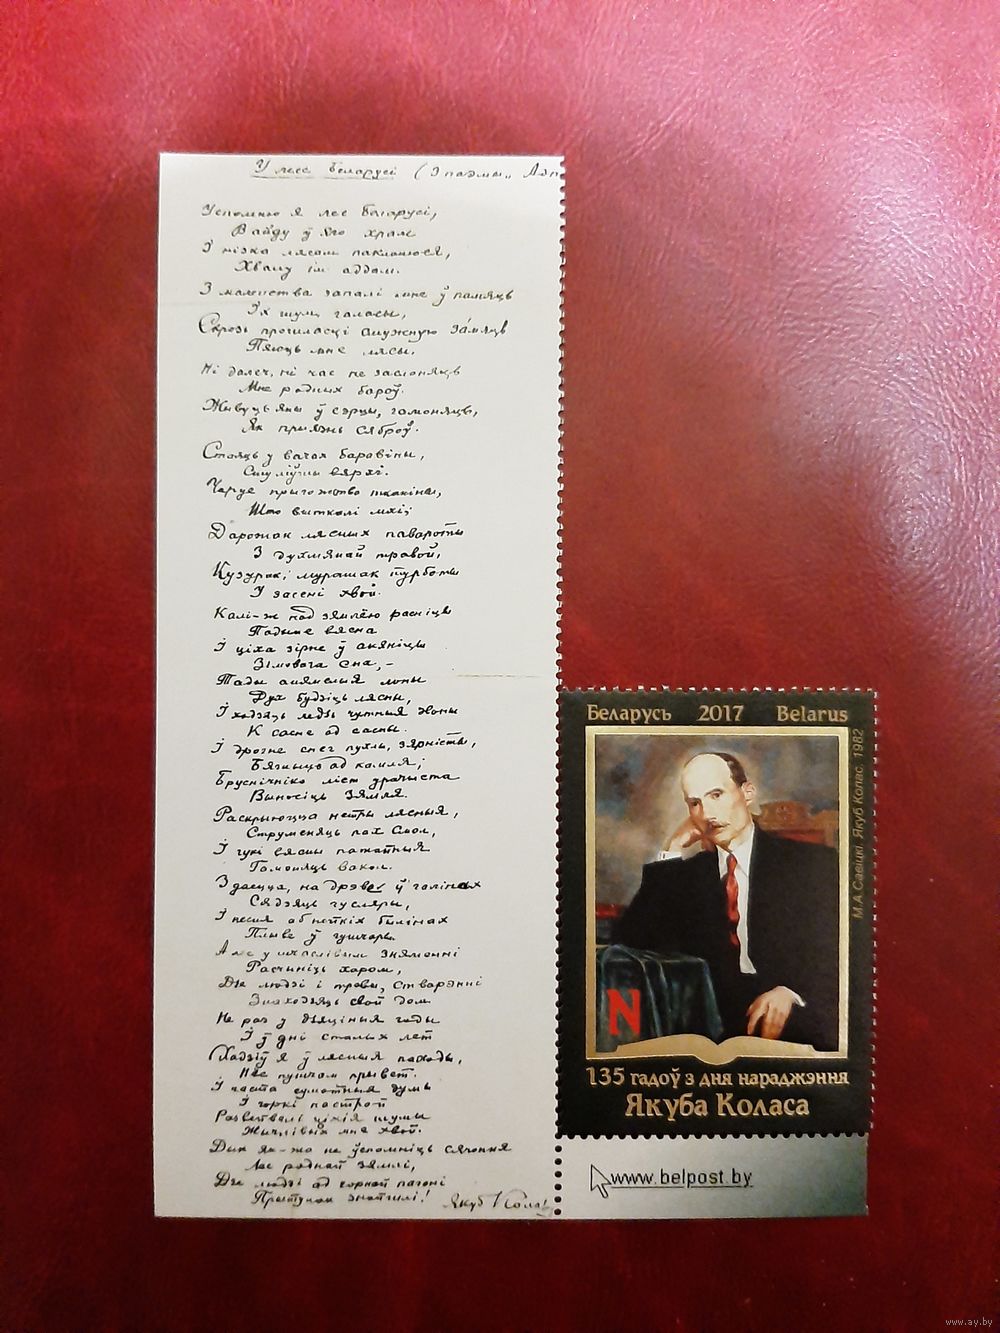 У лесе беларусі (З паэмы „Адп
Успомню я лес беларусі,
Вайду ў яго храм
І нізка лясом пакланюся,
Хвалу ім аддам.
З маленства запалі мне ў памяць
Іх шум, галасы,
Скрозь прогаласкі смужную замяць
Пяюць мне лясы.
Ні далеч, ні час не заслоняць
Мне родных бароў.
Жывуць яны ў сэрцы, гамоняць,
Як прыязнь сяброў.
Стаяць у вачах баравіны,
вярхі.
Чаруе прыгожство тканіны,
Што выткалі мхі;
Дарожак лясных павароты
З духмянай травой,
Кузурак, мурашак турботы
У засені хвой.
Калі-ж над зямлёю расніцы
Падыме вясна
І ціха зірне ў акяніцы
Зімовага сна,–
Тады лоны
Дух будзіць лясны,
І ходзяць ледзь чутныя звоны
К сасне ад сасны.
І дрогне снег пухлы, зярністы,
Бягучы ад камля;
Бруснічніка ліст урачысты
Выносіць зямля.
Раскрыюцца нетры лясныя,
Струменяць пах смол,
І гукі вясны патайныя
Гамоняць вакол.
Здаецца, на дрэвах ў галінах
Сядзяць гусляры,
І песня аб нейкіх былінах
Плыве ў гушчары.
Але у шчаслівым знямення
Расчыніць харом,
Дзе людзі і травы, стварэнні
Знаходзяць свой дом.
Не раз у дзяціныя годы
І ў дні сталых лет
Хадзіў я ў лясныя паходы,
Нёс пушчам прывет.
І часта сумотныя думы
І горкі настрой
Развейвалі ціхія шумы
Жычлівых мне хвой.
Дык як-жа не ўспомніць сягоння
Лес роднай зямлі,
Дзе людзі ад чорнай пагоні
Прытулак знайшлі!
Якуб Колас
Беларусь 2017 Belarus
М.А.Савіцкі. Якуб Колас. 1982
N
135 гадоў з дня нараджэння
Якуба Коласа
www.belpost.by
www.ay.by